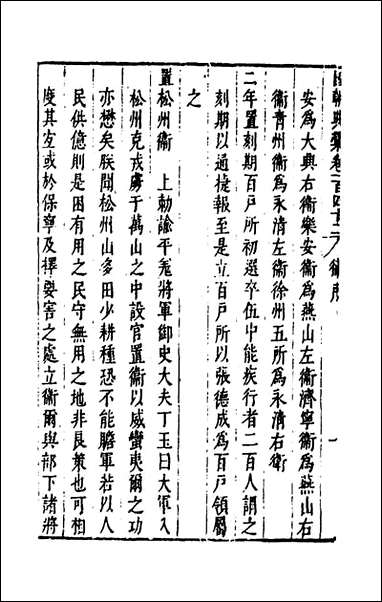 國朝典彙卷一百四十二 衛所 一
安爲大興右衛樂安衛爲燕山左衛濟寧衛爲燕山右
衛青州衛爲永清左衛徐州五所爲永清右衛
二年置刻期百戶所初選卒伍中能疾行者二百人謂之
刻期以通捷報至是立百戶所以張德成爲百戶領屬
之
置松州衛 上勅諭平羗將軍御史大夫丁玉曰大軍入
松州克戎虜于萬山之中設官置衛以威蠻夷爾之功
亦懋矣朕聞松州山多田少耕種恐不能贍軍若以人
民供億則是困有用之民守無用之地非良策也可相
度其宜或於保寧及擇要害之處立衛爾與部下諸將